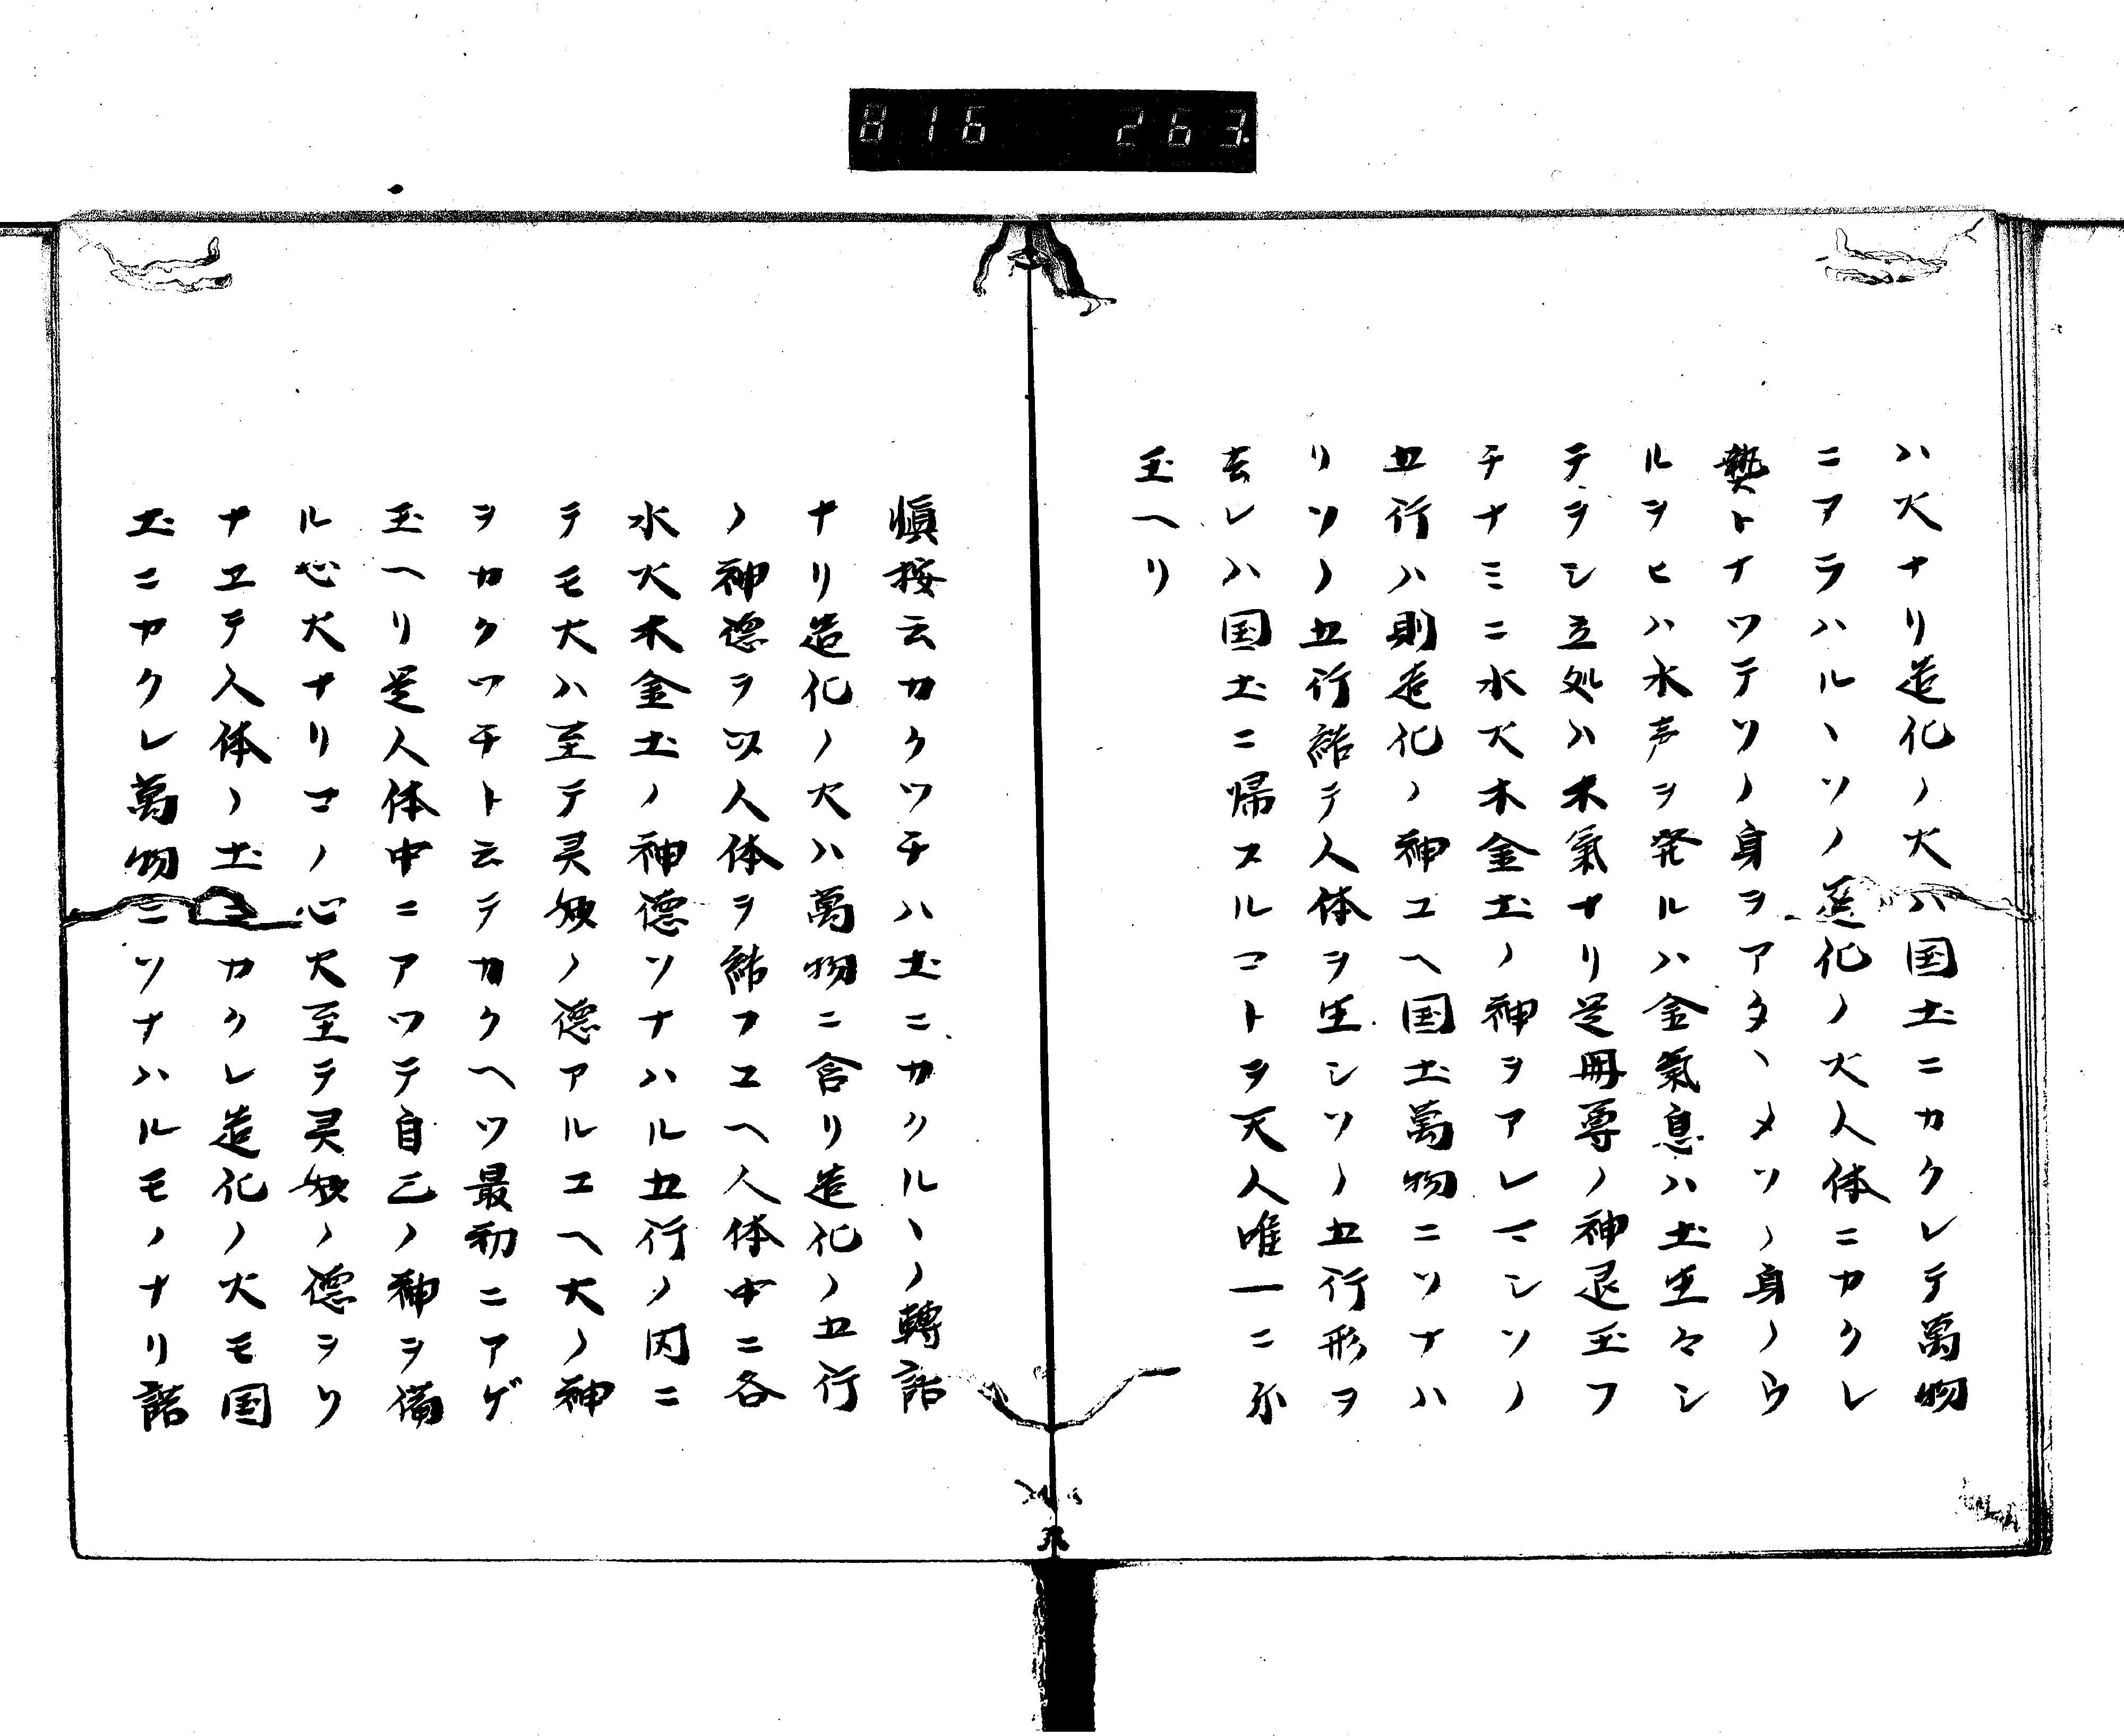 816 263.
ハ火ナリ造化ノ火ハ国土ニカクレテ萬物
ニアラハルヽソノ造化ノ火人体ニカクレ
熱トナツテソノ身ヲアタヽメソノ身ノウ
ルヲヒハ水声ヲ発ルハ金氣息ハ土生々シ
テヲシ立処ハ木氣ナリ是冊尊ノ神退玉フ
チナミニ水火木金土ノ神ヲアレマシソノ
五行ハ則造化ノ神ユヘ国土萬物ニソナハ
リソノ五行結テ人体ヲ生シソノ五行形ヲ
去レハ国土ニ帰スルコトヲ天人唯一ニ示
玉ヘリ
愼按云カクツチハ土ニカクルヽノ轉語
ナリ造化ノ火ハ萬物ニ含リ造化ノ五行
ノ神德ヲ以人体ヲ結フユヘ人体中ニ各
水火木金土ノ神德ソナハル五行ノ内ニ
テモ火ハ至テ灵妙ノ德アルユヘ火ノ神
ヲカクツチト云テカクヘツ最初ニアゲ
玉ヘリ是人体中ニアツテ自己ノ神ヲ備
ル心火ナリコノ心火至テ灵妙ノ德ヲソ
ナヱテ人体ノ土ニカクレ造化ノ火モ国
土ニカクレ萬物ニソナハルモノナリ諾